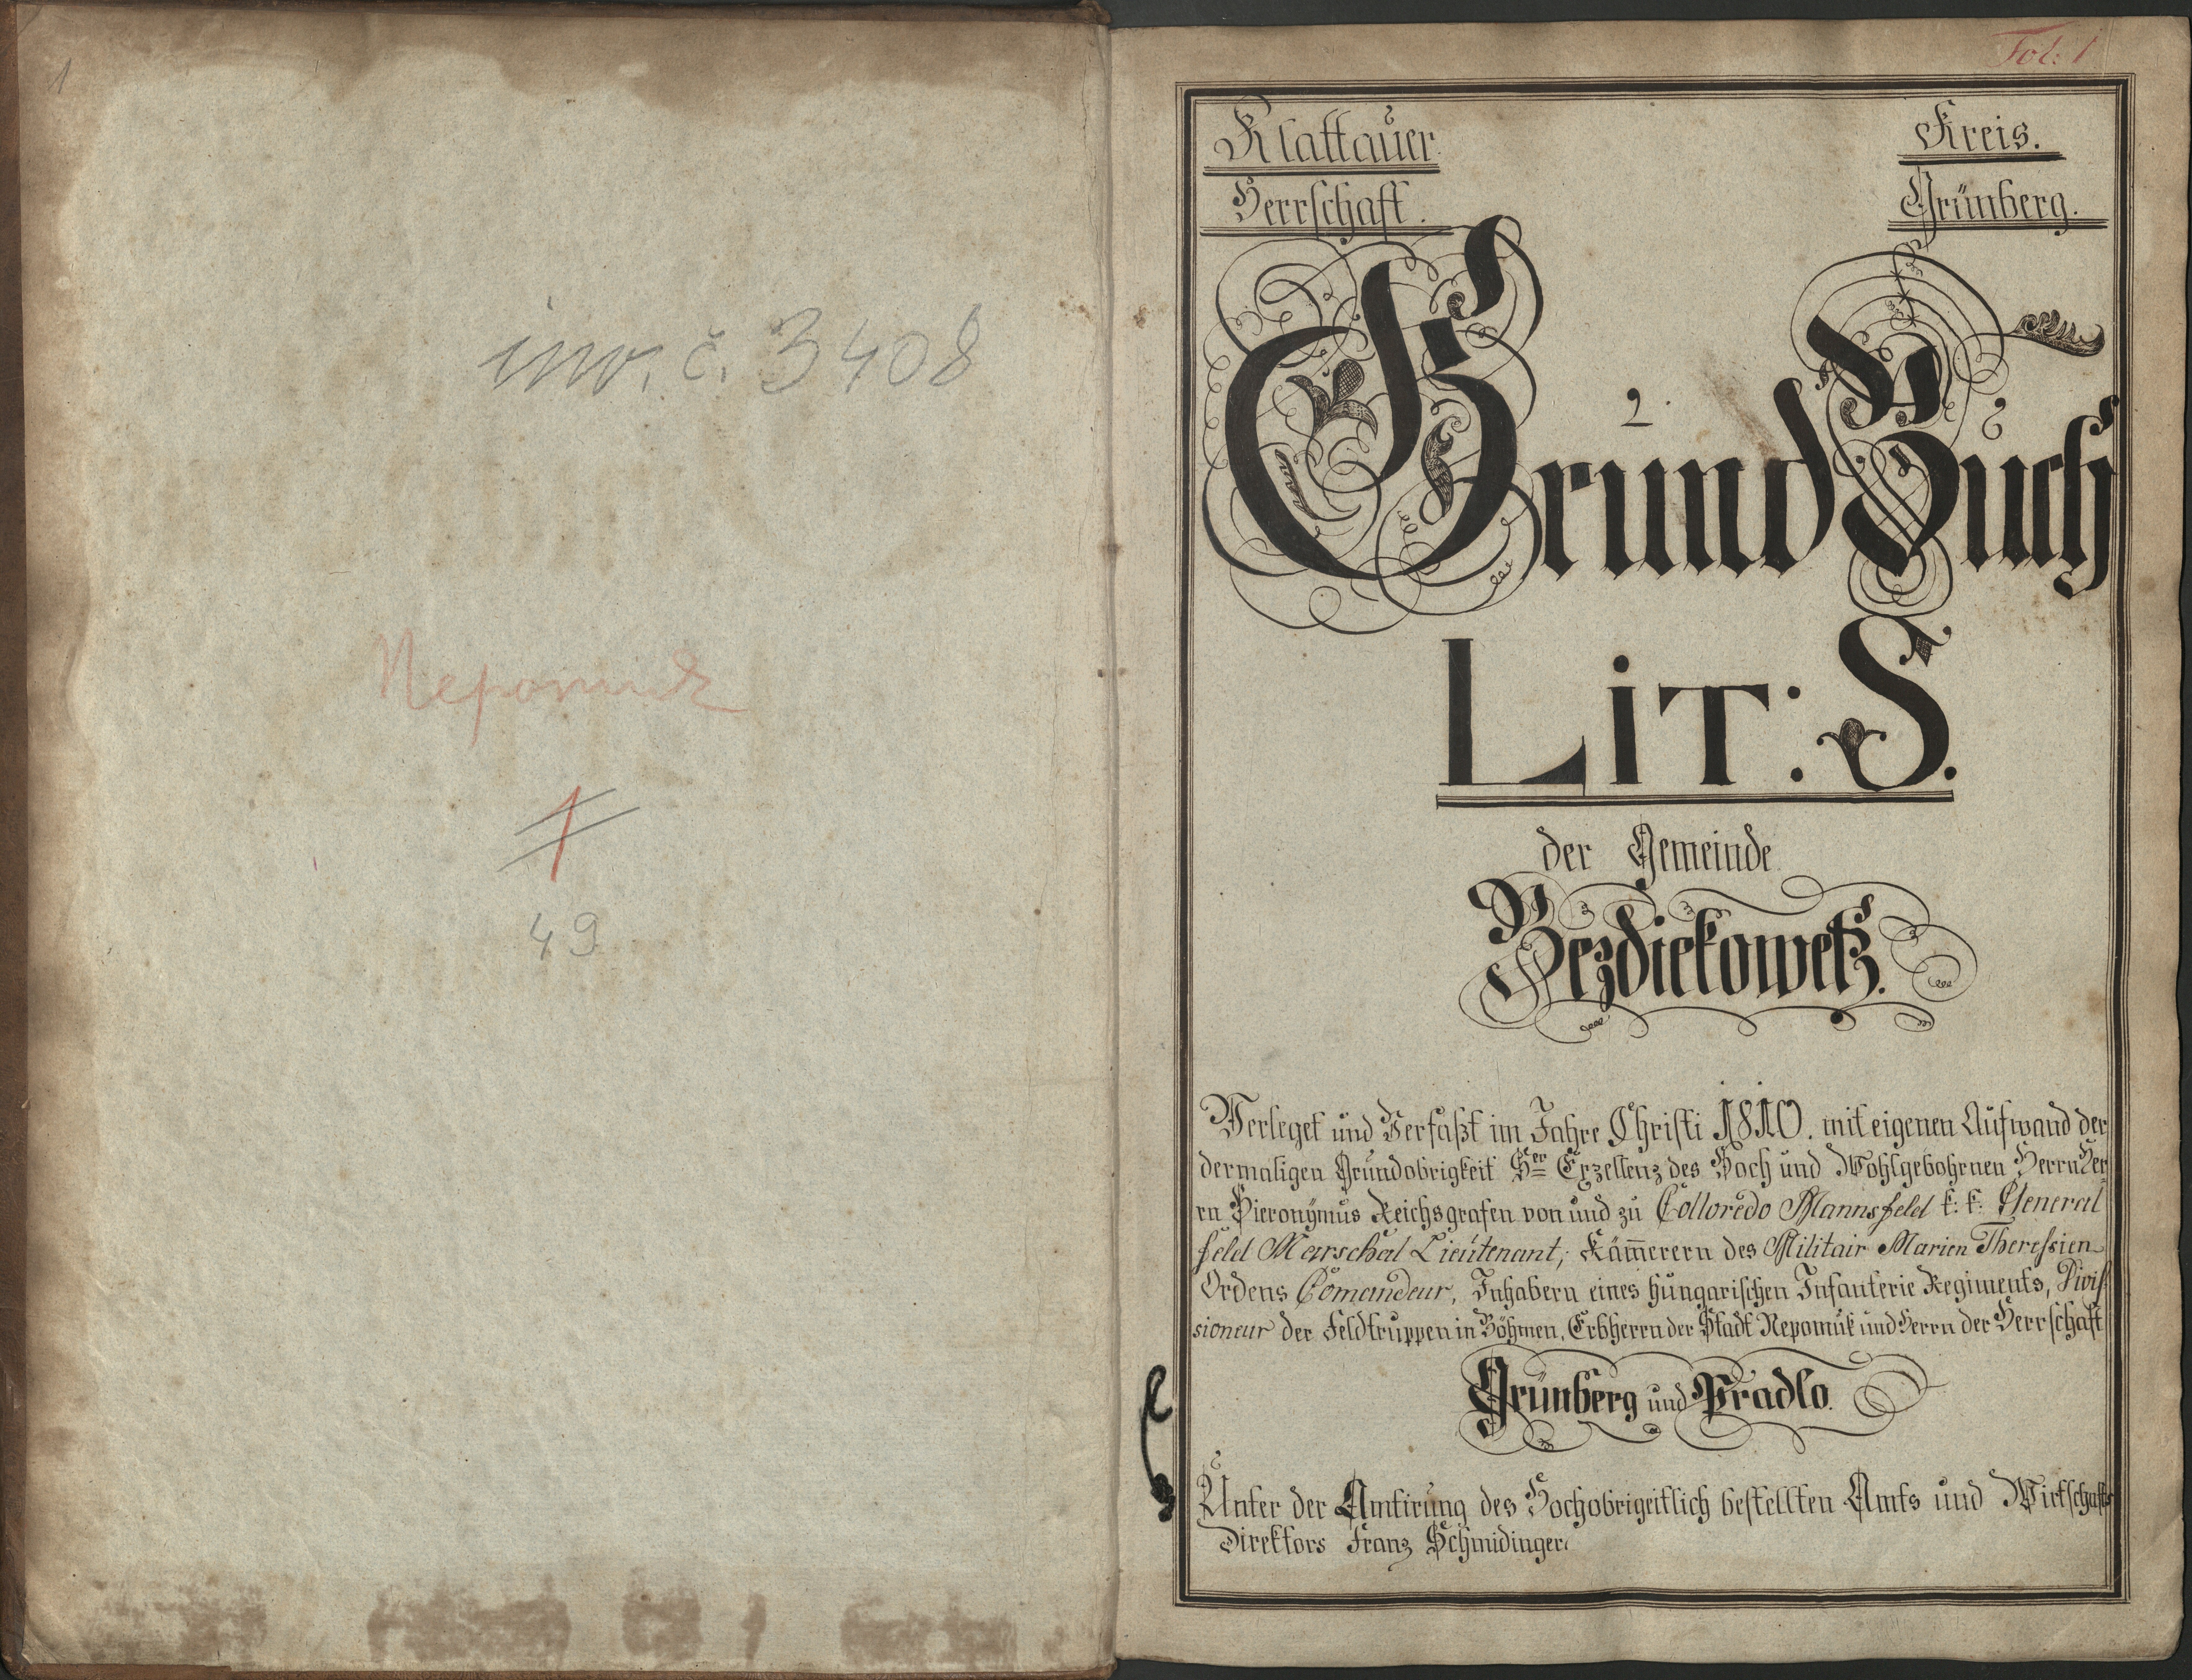 1
inv. č. 3408
Nepomuk
1
49
Fol: 1
Klattauer Kreis.
Herrschaft. Grünberg.
Grund Buch
LiT: S.
der Gemeinde
Bezdiekowetz.
Verleget und Verfaßt im Jahre Christi 1810. mit eigenen Aufwand der
dermaligen Grundobrigkeit Sr Exzellenz des Hoch und Wohlgebohrnen Herrn Her
rn Hieronÿmus Reichsgrafen von und zu Colloredo Mannsfeld k: k: General
feld Marschal Lieutenant, Kam̅erern des Militair Marien Theressien
Ordens Comandeur, Inhabern eines hungarischen Infanterie Regiments, Divis
sioneur der Feldtruppen in Böhmen, Erbherrn der Stadt Nepomuk und Herrn der Herrschaft
Grünberg und Pradlo.
Unter der Amtirung des Hochobrigeitlich bestellten Amts und Wirtschafts
Direktors Franz Schmidinger